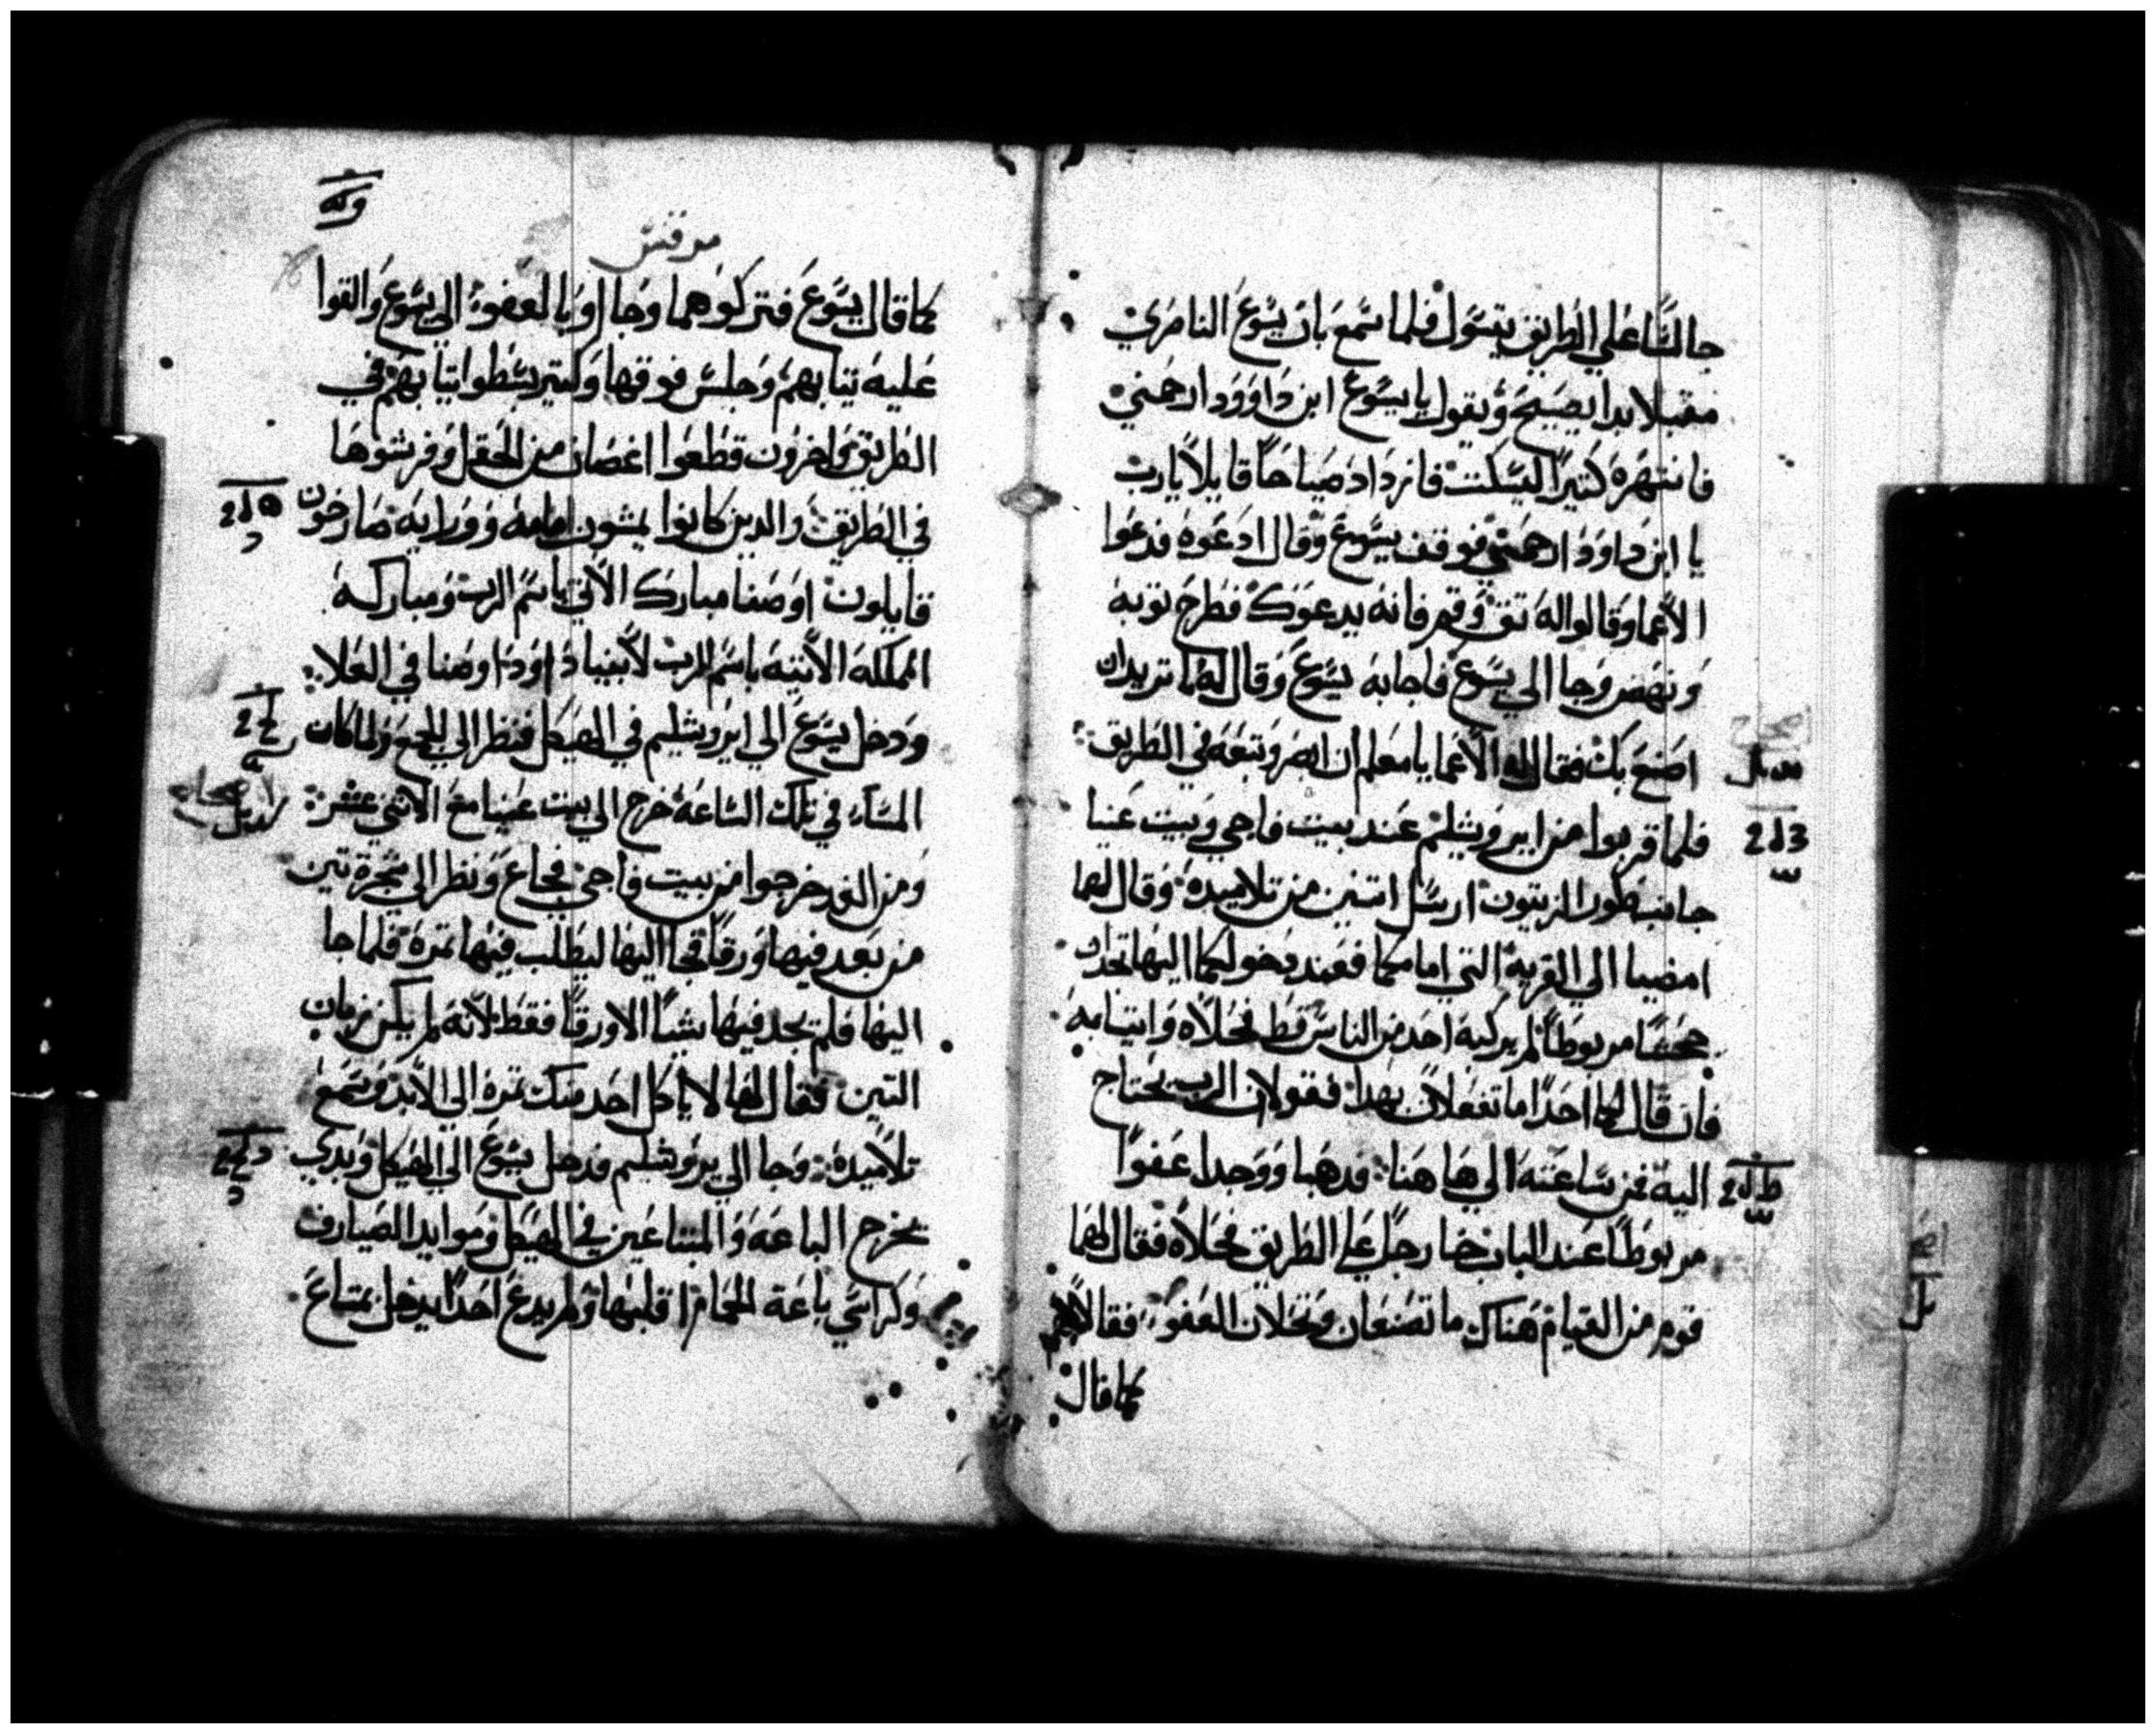 جالسًا علي الطريق يتسول فلما سمع بان يسوع الناصري
مقبلا بدا يصيح ويقول يا يسوع ابن داوود ارحمني
فانتهره كثيرًا ليسكت فازداد صياحًا قايلاً يارب
يا ابن داود ارحمني فوقف يسوع وقال ادعوه فدعوا
الاعما وقالوا له تق وقم فانه يدعوك فطرح توبه
ونهض وجا الي يسوع فاجابه يسوع وقال له ما تريد ان
اصنع بك فقال له الاعما يا معلم ان ابصر وتبعه في الطريق
فلما قربوا من ايروشليم عند بيت فاجي وبيت عنيا
جانب طور الزيتون ارسل اتنين من تلاميده وقال لهما
امضيا الي القرية التي امامكما فعند دخولكما اليها تجدان
جحشًا مربوطًا لم يركبه احد من الناس قط فحلاه وايتيا به
فان قال لكما احدًا ما تفعلان بهدا فقولا ان الرب يحتاج
اليه فمن ساعته الي هاهنا فدهبا ووجدا عفوًا
مربوطًا عند الباب خارجًا علي الطريق فحلاه فقال لهما
قوم من القيام هناك ما تصنعان وتحلان العفو فقالا لهم
كما قال
مرقس
كما قال يسوع فتركوهما وجا اوبالعفو الي يسوع والقوا
عليه تيابهم وجلس فوقها وكتير بسطوا تيابهم في
الطريق واخرون قطعوا اغصان من الحقل وفرشوها
في الطريق والدين كانوا يمشون امامه وورايه صارخون
قايلون اوصنا مبارك الاتي باسم الرب ومباركه
المملكه الاتيه باسم الرب لابينا داوود اوصنا في العلا
ودخل يسوع الي ايروشليم في الهيكل فنظر الي الجميع ولما كان
المساء في تلك الساعة خرج الي بيت عنيا مع الاتني عشر
ومن الغد خرجوا من بيت فاجي فجاع ونظر الي شجرة تين
من بعد فيها ورقًا فجا اليها ليطلب فيها تمره فلما جا
اليها فلم يجد فيها شيًا الا ورقًا فقط لانه لم يكن زمان
التين فقال لها لا ياكل احد منك تمره الي الابد وسمع
تلاميده وجا الي يروشليم فدخل يسوع الي الهيكل وبدي
يخرج الباعه والمبتاعين في الهيكل وموايد الصيارف
وكراسي باعة الحمام اقلبها ولم يدع احدًا يدخل بمتاع